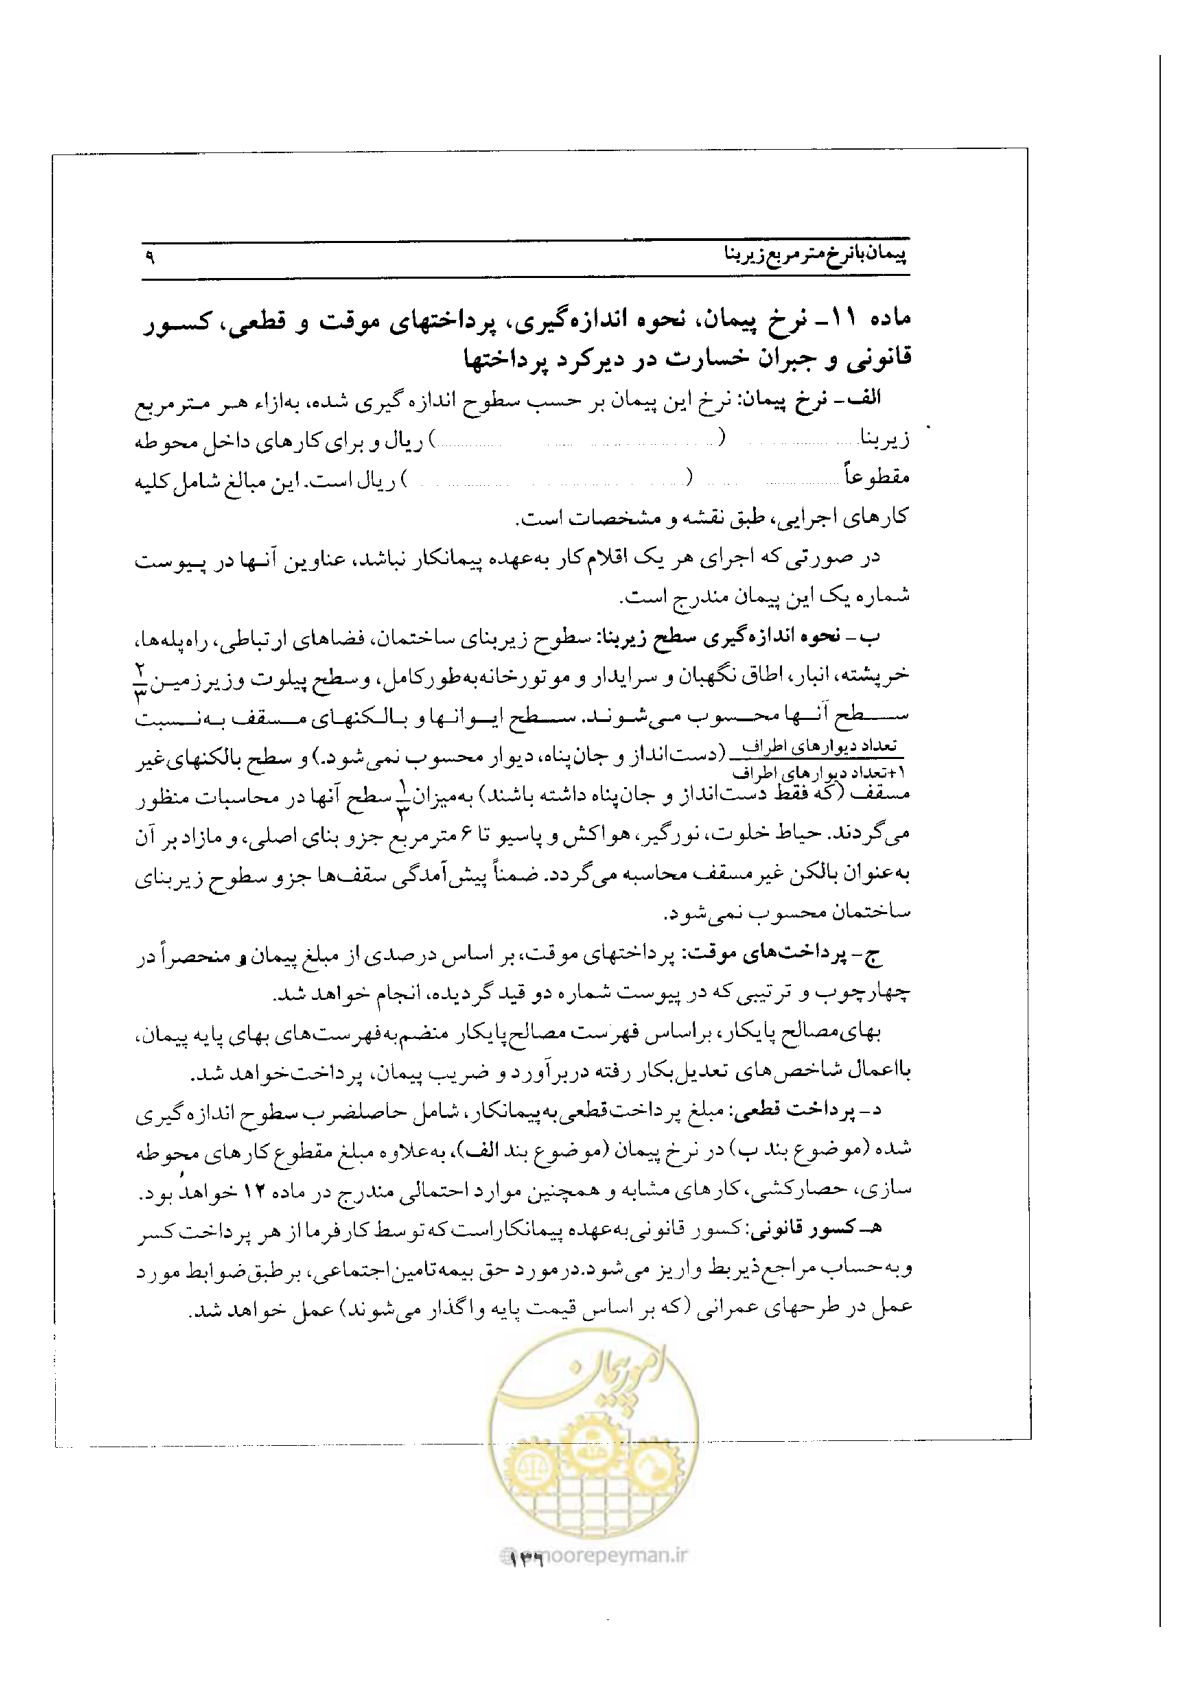 پیمان با نرخ متر مربع زیربنا
۹
ماده ۱۱ـ نرخ پیمان، نحوه اندازه‌گیری، پرداختهای موقت و قطعی، کسور
قانونی و جبران خسارت در دیرکرد پرداختها
الف‌ـ نرخ پیمان: نرخ این پیمان بر حسب سطوح اندازه گیری شده، به‌ازاء هر مترمربع
زیربنا.................... (........................................) ریال و برای کارهای داخل محوطه
مقطوعاً.................... (........................................) ریال است. این مبالغ شامل کلیه
کارهای اجرایی، طبق نقشه و مشخصات است.
در صورتی که اجرای هر یک اقلام کار به‌عهده پیمانکار نباشد، عناوین آنها در پیوست
شماره یک این پیمان مندرج است.
ب‌ـ نحوه اندازه‌گیری سطح زیربنا: سطوح زیربنای ساختمان، فضاهای ارتباطی، راه‌پله‌ها،
خرپشته، انبار، اطاق نگهبان و سرایدار و موتورخانه به‌طور کامل، و سطح پیلوت وزیرزمین ۲/۳
سطح آنها محسوب می‌شوند. سطح ایوانها و بالکنهای مسقف به‌نسبت
تعداد دیوارهای اطراف / ۱+تعداد دیوارهای اطراف (دست‌انداز و جان‌پناه، دیوار محسوب نمی‌شود.) و سطح بالکنهای غیر
مسقف (که فقط دست‌انداز و جان‌پناه داشته باشند) به‌میزان ۱/۳ سطح آنها در محاسبات منظور
می‌گردند. حیاط خلوت، نورگیر، هواکش و پاسیو تا ۶ مترمربع جزو بنای اصلی، و مازاد بر آن
به‌عنوان بالکن غیرمسقف محاسبه می‌گردد. ضمناً پیش‌آمدگی سقف‌ها جزو سطوح زیربنای
ساختمان محسوب نمی‌شود.
ج‌ـ پرداخت‌های موقت: پرداختهای موقت، بر اساس درصدی از مبلغ پیمان و منحصراً در
چهارچوب و ترتیبی که در پیوست شماره دو قید گردیده، انجام خواهد شد.
بهای مصالح پایکار، براساس فهرست مصالح پایکار منضم به‌فهرست‌های بهای پایه پیمان،
بااعمال شاخص‌های تعدیل بکار رفته دربرآورد و ضریب پیمان، پرداخت خواهد شد.
د‌ـ پرداخت قطعی: مبلغ پرداخت قطعی به‌پیمانکار، شامل حاصلضرب سطوح اندازه گیری
شده (موضوع بند ب) در نرخ پیمان (موضوع بند الف)، به‌علاوه مبلغ مقطوع کارهای محوطه
سازی، حصارکشی، کارهای مشابه و همچنین موارد احتمالی مندرج در ماده ۱۲ خواهد بود.
هـ‌ـ کسور قانونی: کسور قانونی به‌عهده پیمانکار است که توسط کارفرما از هر پرداخت کسر
و به حساب مراجع ذیربط واریز می‌شود. درمورد حق بیمه تامین اجتماعی، بر طبق ضوابط مورد
عمل در طرحهای عمرانی (که بر اساس قیمت پایه واگذار می‌شوند) عمل خواهد شد.
امور پیمان
@emoorepeyman.ir
۱۳۶